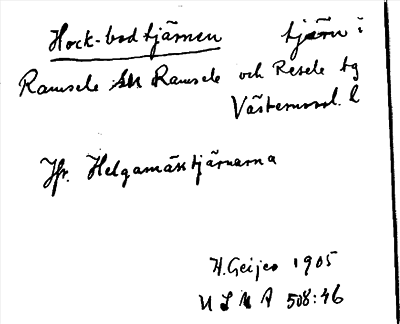 Hock-bodtjärnen tjärn i
Ramsele sn Ramsele och Resele tg
Västernorrl. l
Jfr. Helgamäss tjärnarna
H. Geijer 1905
ULMA 508:46